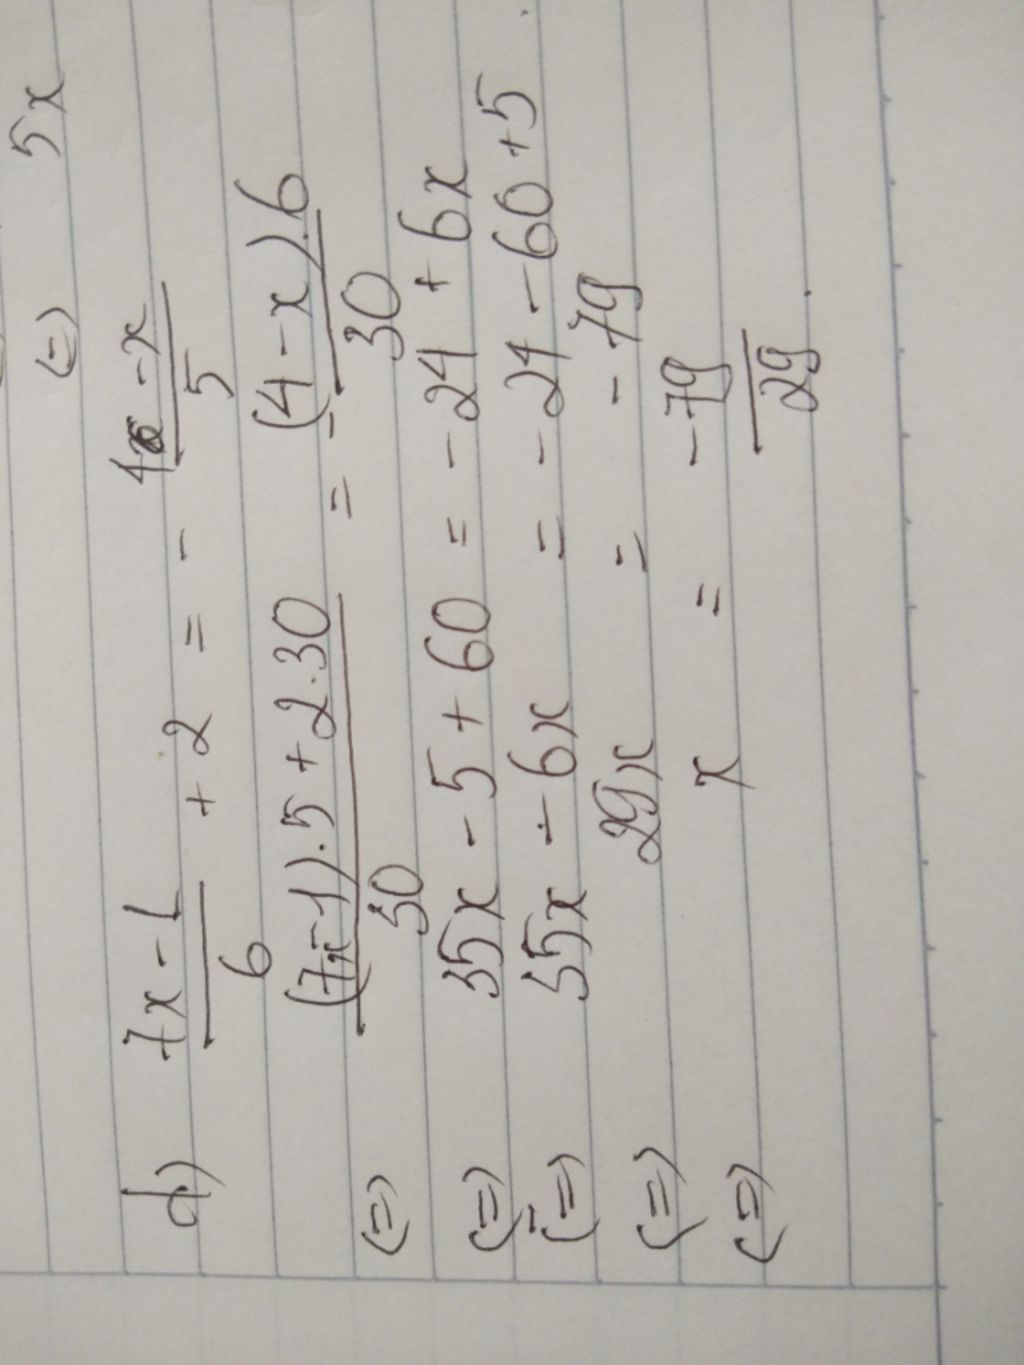 (=) 5x
d) 7x - 1 / 6 + 2 = - 4 - x / 5
(=) (7x-1).5 + 2.30 / 30 = - (4 - x).6 / 30
(=) 35x - 5 + 60 = - 24 + 6x
(=) 35x - 6x = - 24 - 60 + 5
(=) 29x = - 79
(=) x = - 79 / 29